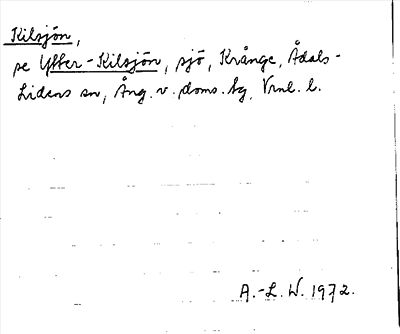 Kilsjön,
se Ytter-Kilsjön, sjö, Krånge, Ådals-
Lidens sn, Ång. v. doms. hg, Vrnl. l.
A.-L. W. 1972.